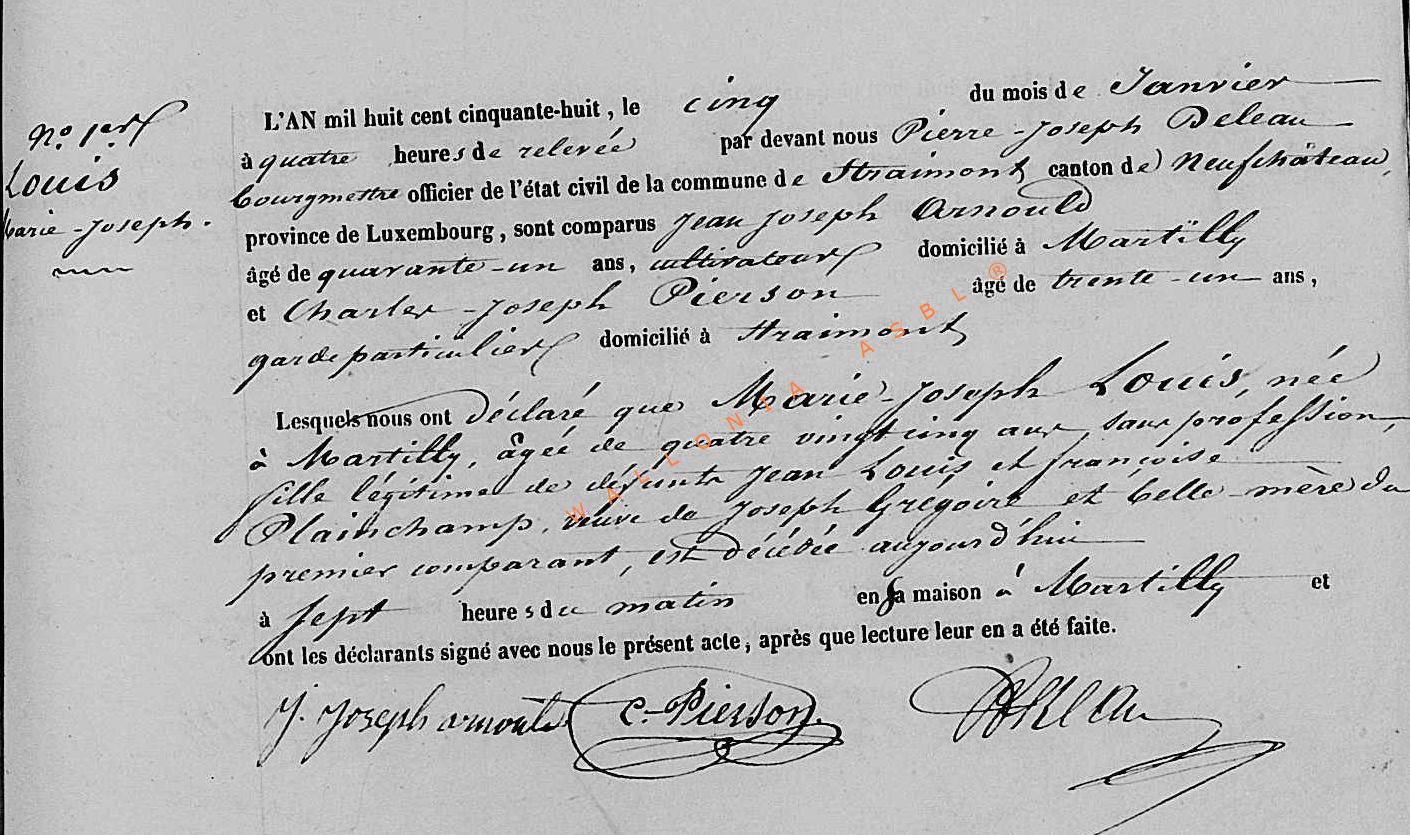 N.o 1er
Louis
Marie-Joseph.
L'AN mil huit cent cinquante-huit, le cinq du mois de Janvier
à quatre heures de relevée par devant nous Pierre-Joseph Deleau
bourgmestre officier de l'état civil de la commune de Straimont canton de Neufchâteau,
province de Luxembourg, sont comparus Jean Joseph Arnould
âgé de quarante-un ans, cultivateur domicilié à Martilly
et Charles-Joseph Pierson âgé de trente-un ans,
garde particulier domicilié à Straimont
Lesquels nous ont déclaré que Marie-Joseph Louis, née
à Martilly, âgée de quatre vingt cinq ans, sans profession,
fille légitime de défunts Jean Louis et françoise
Plainchamp, veuve de Joseph Grégoire et belle-mère du
premier comparant, est décédée aujourd'hui
à sept heures du matin en sa maison à Martilly et
ont les déclarants signé avec nous le présent acte, après que lecture leur en a été faite.
J. Joseph arnould C. Pierson. Deleau
WALLONIA ASBL ®